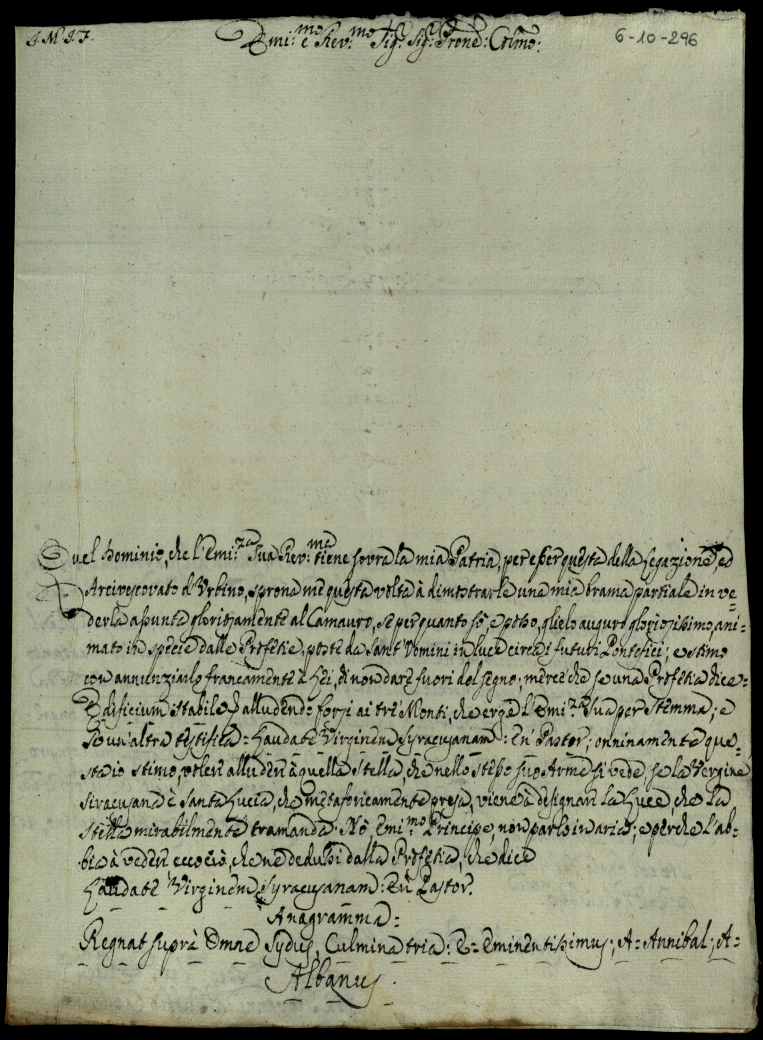 J. M. J. F.
Emi:mo e Rev:mo Sig:r Sig:r Prone: Colmo:
6-10-296
Quel Dominio, che l'Emi:za Sua Rev:ma tiene sovra la mia Patria, per esser questa della Legazione, ed
Arcivescovato d'Urbino, sprona me questa volta à dimostrarle una mia brama partiale in ve=
derla apunto gloriosamente al Camauro, se per quanto sò, e posso, glielo auguro gloriosissimo, ani=
mato in specie dalle Profetie, poste da Sant' Uomini in luce circa i futuri Pontefici; e stimo
con annunziarlo francamente à Lei, di non dare fuori del segno; mercè che se una Profetia dice=
Edificium stabile, alludendo forsi ai trè Monti, che erge l'Emi:za Sua per Stemma; e
se un'altra testifica= Laudate Virginem Syracusanam: En Pastor; onninamente que=
sta io stimo, volere alludere à quella Stella, che nello stesso suo Arme si vede, se la Vergine
Siracusana è Santa Lucia, che metaforicamente presa, viene à designare la Luce, che la
Stella mirabilmente tramanda. Nò Emi:mo Principe, non parlo in aria; e perche l'ab=
bia à vedere eccociò, che ne dedussi dalla Profetia, che dice
Laudate Virginem Syracusanam: En Pastor.
Anagramma=
Regnat suprà Omne Sydus, Culmina tria: E= Eminentissimus; A= Annibal; A=
Albanus.